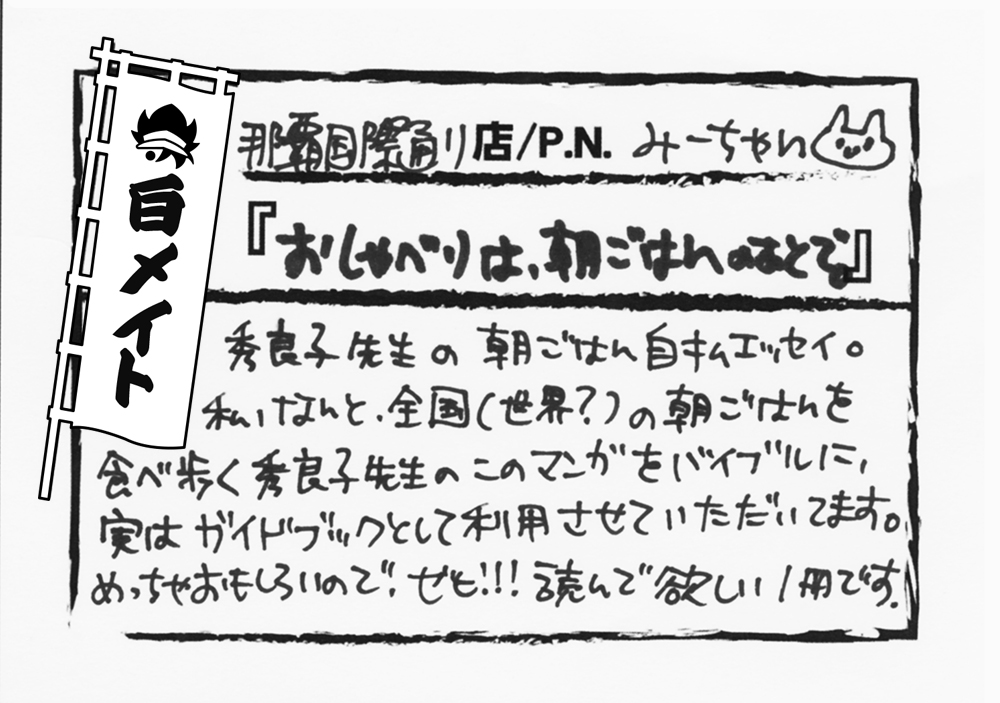 自メイト
那覇国際通り店/P.N. みーちゃん
『おしゃべりは、朝ごはんのあとで。』
秀良子先生の 朝ごはん自キムエッセイ。
私、なんと、全国(世界?)の朝ごはんを
食べ歩く秀良子先生のこのマンガをバイブルに、
実は ガイドブックとして利用させていただいてます。
めっちゃおもしろいので!ぜひ!!!読んで欲しい1冊です。